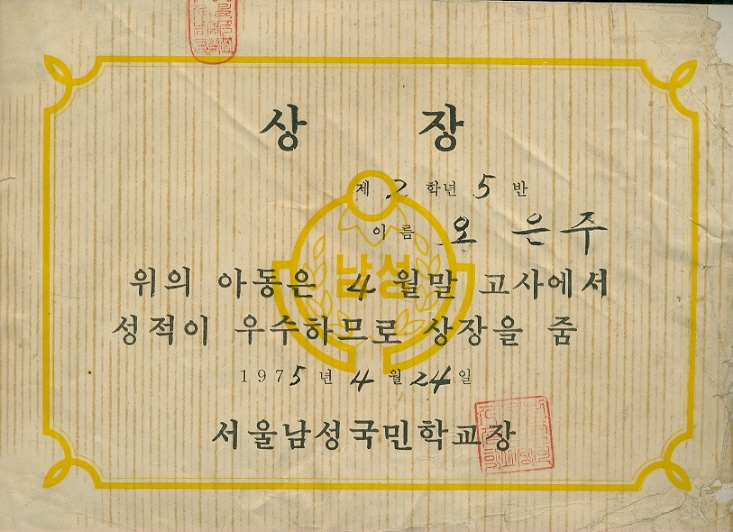 상 장
제 2 학년 5 반
이름 오 은주
남성
위의 아동은 4 월말 고사에서
성적이 우수하므로 상장을 줌
1975 년 4 월 24 일
서울남성국민학교장